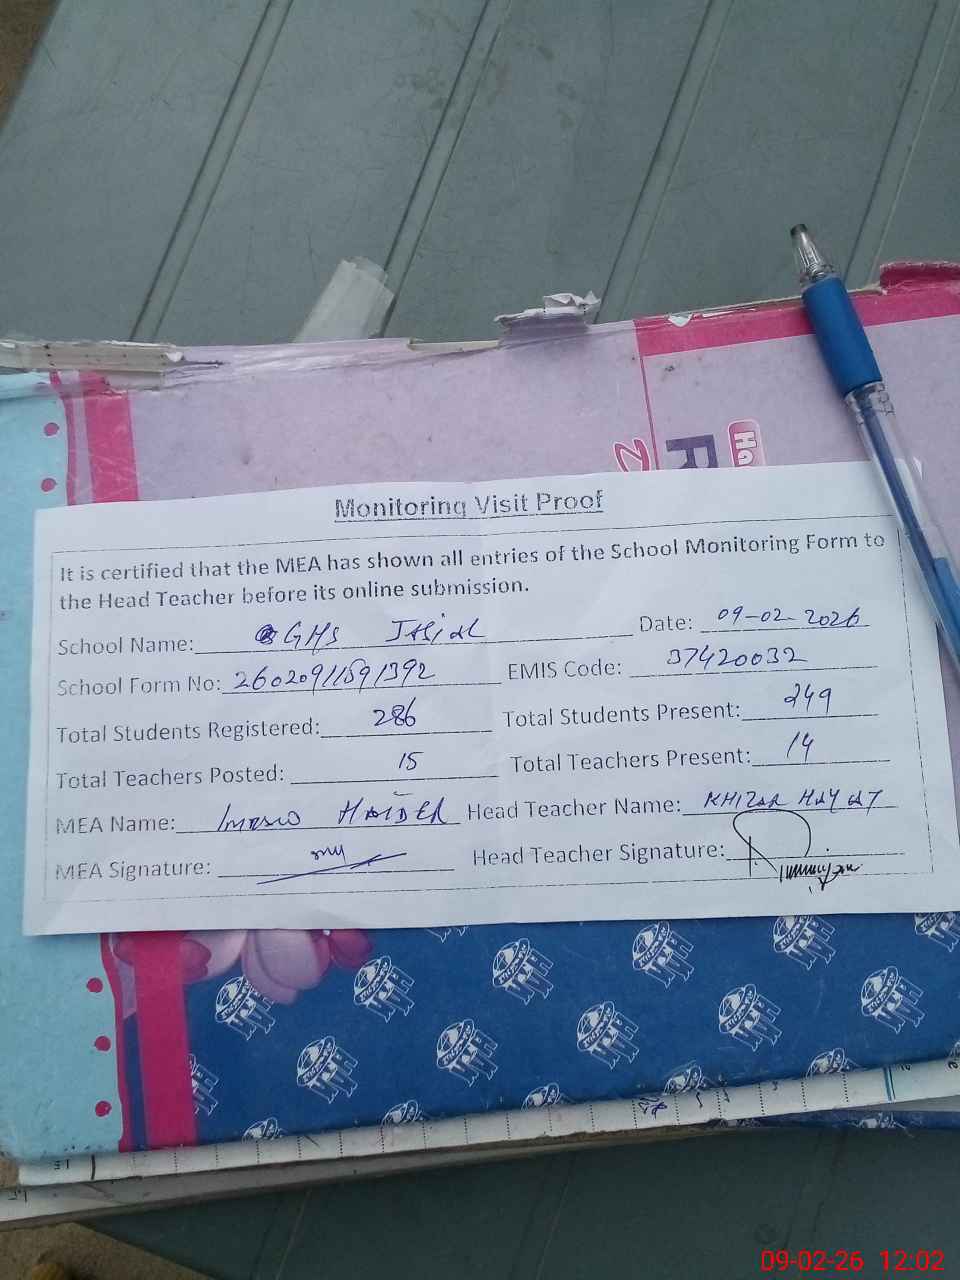 Monitoring Visit Proof
It is certified that the MEA has shown all entries of the School Monitoring Form to
the Head Teacher before its online submission.
School Name: GHS Jhial Date: 09-02-2026
School Form No: 26020911591392 EMIS Code: 37420032
Total Students Registered: 286 Total Students Present: 249
Total Teachers Posted: 15 Total Teachers Present: 14
MEA Name: HAIDER Head Teacher Name: KHIZAR HAYAT
MEA Signature: Head Teacher Signature:
09-02-26 12:02